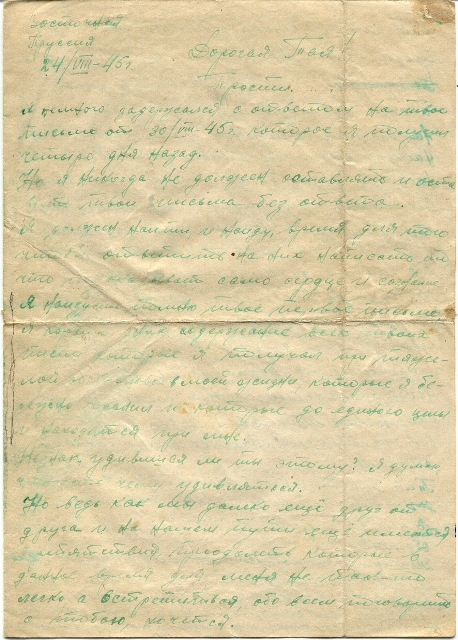 Восточная
Пруссия
24/VIII-45г.
Дорогая Тая!
Прости....
Я немного задержался с ответом на твое
письмо от 30/VII-45г. которое я получил
четыре дня назад.
Но я никогда не должен оставлять и оста
твои письма без ответа.
Я должен найти и найду, время для того
ответить на них написать то
что само сердце и сознание
Я помню твое первое письмо
содержание всех твоих
писем которые я получал при тяже-
лой моей жизни которые я бе-
режно хранил и которые до единого целы
и находятся при мне.
Ну как удивишся ли ты этому? Я думаю
что есть чему удивляться.
Но ведь как мы далеко ещё друг от
друга и на нашем пути ещё имеются
препятствия преодолеть которые в
данное время для меня не так-то
легко а встретиться, обо всем поговорить
с тобою, хочется.